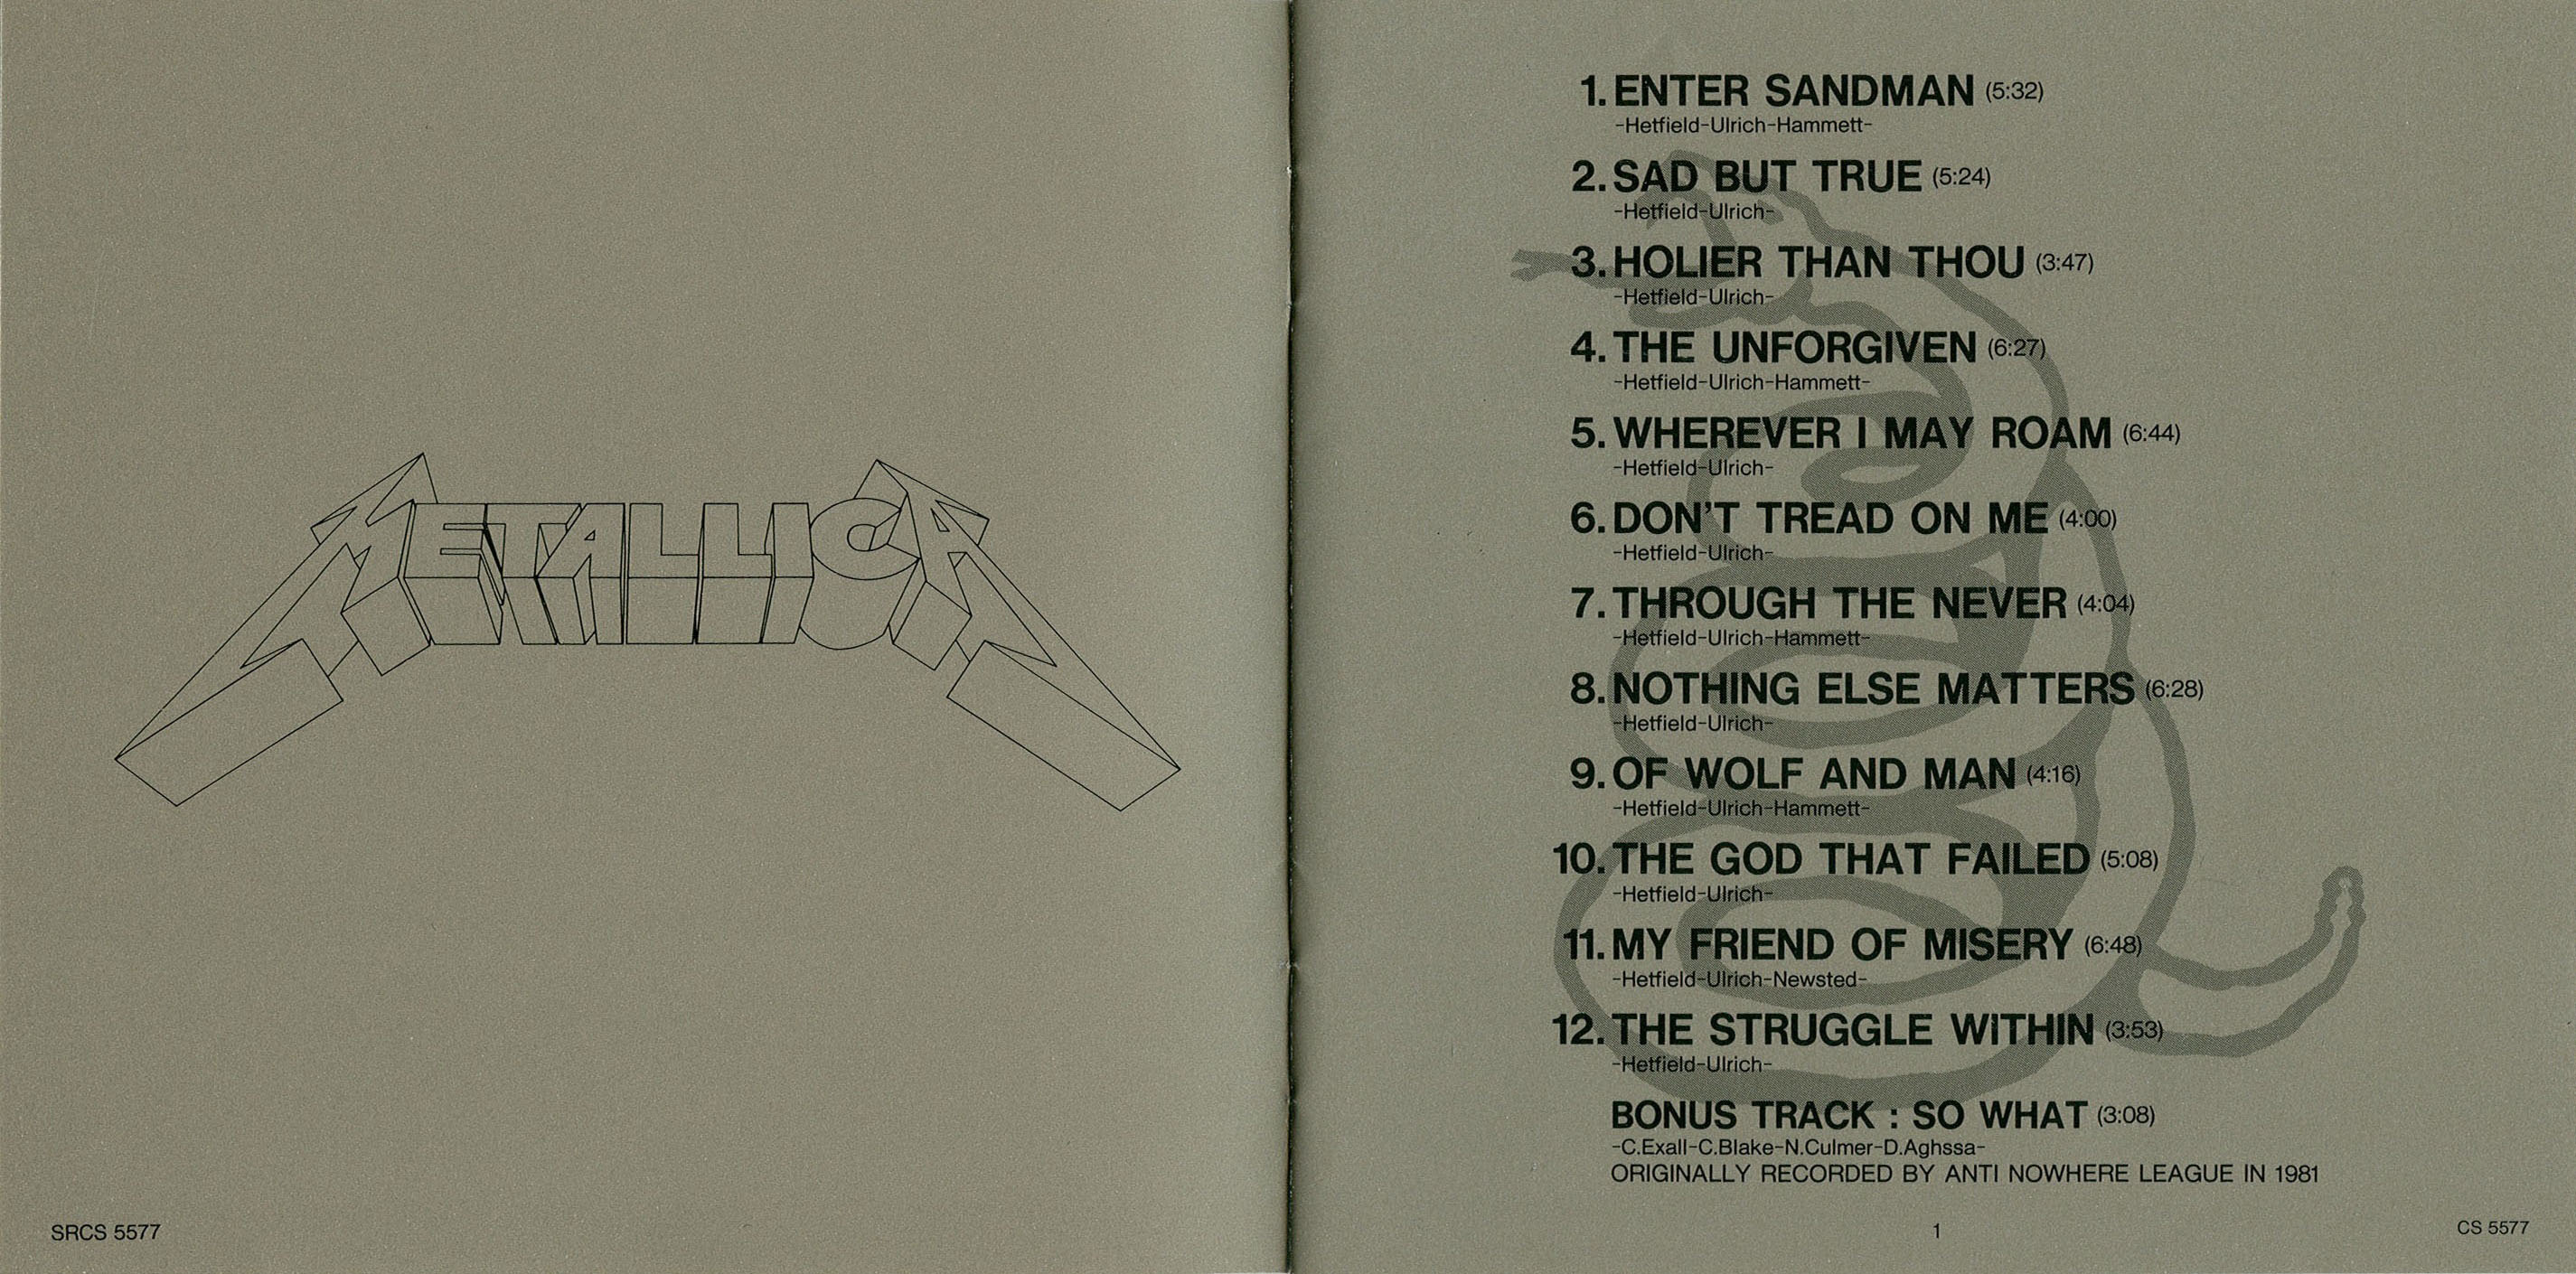 METALLICA
SRCS 5577
1. ENTER SANDMAN (5:32)
-Hetfield-Ulrich-Hammett-
2. SAD BUT TRUE (5:24)
-Hetfield-Ulrich-
3. HOLIER THAN THOU (3:47)
-Hetfield-Ulrich-
4. THE UNFORGIVEN (6:27)
-Hetfield-Ulrich-Hammett-
5. WHEREVER I MAY ROAM (6:44)
-Hetfield-Ulrich-
6. DON'T TREAD ON ME (4:00)
-Hetfield-Ulrich-
7. THROUGH THE NEVER (4:04)
-Hetfield-Ulrich-Hammett-
8. NOTHING ELSE MATTERS (6:28)
-Hetfield-Ulrich-
9. OF WOLF AND MAN (4:16)
-Hetfield-Ulrich-Hammett-
10. THE GOD THAT FAILED (5:08)
-Hetfield-Ulrich-
11. MY FRIEND OF MISERY (6:48)
-Hetfield-Ulrich-Newsted-
12. THE STRUGGLE WITHIN (3:53)
-Hetfield-Ulrich-
BONUS TRACK : SO WHAT (3:08)
-C.Exall-C.Blake-N.Culmer-D.Aghssa-
ORIGINALLY RECORDED BY ANTI NOWHERE LEAGUE IN 1981
1
CS 5577